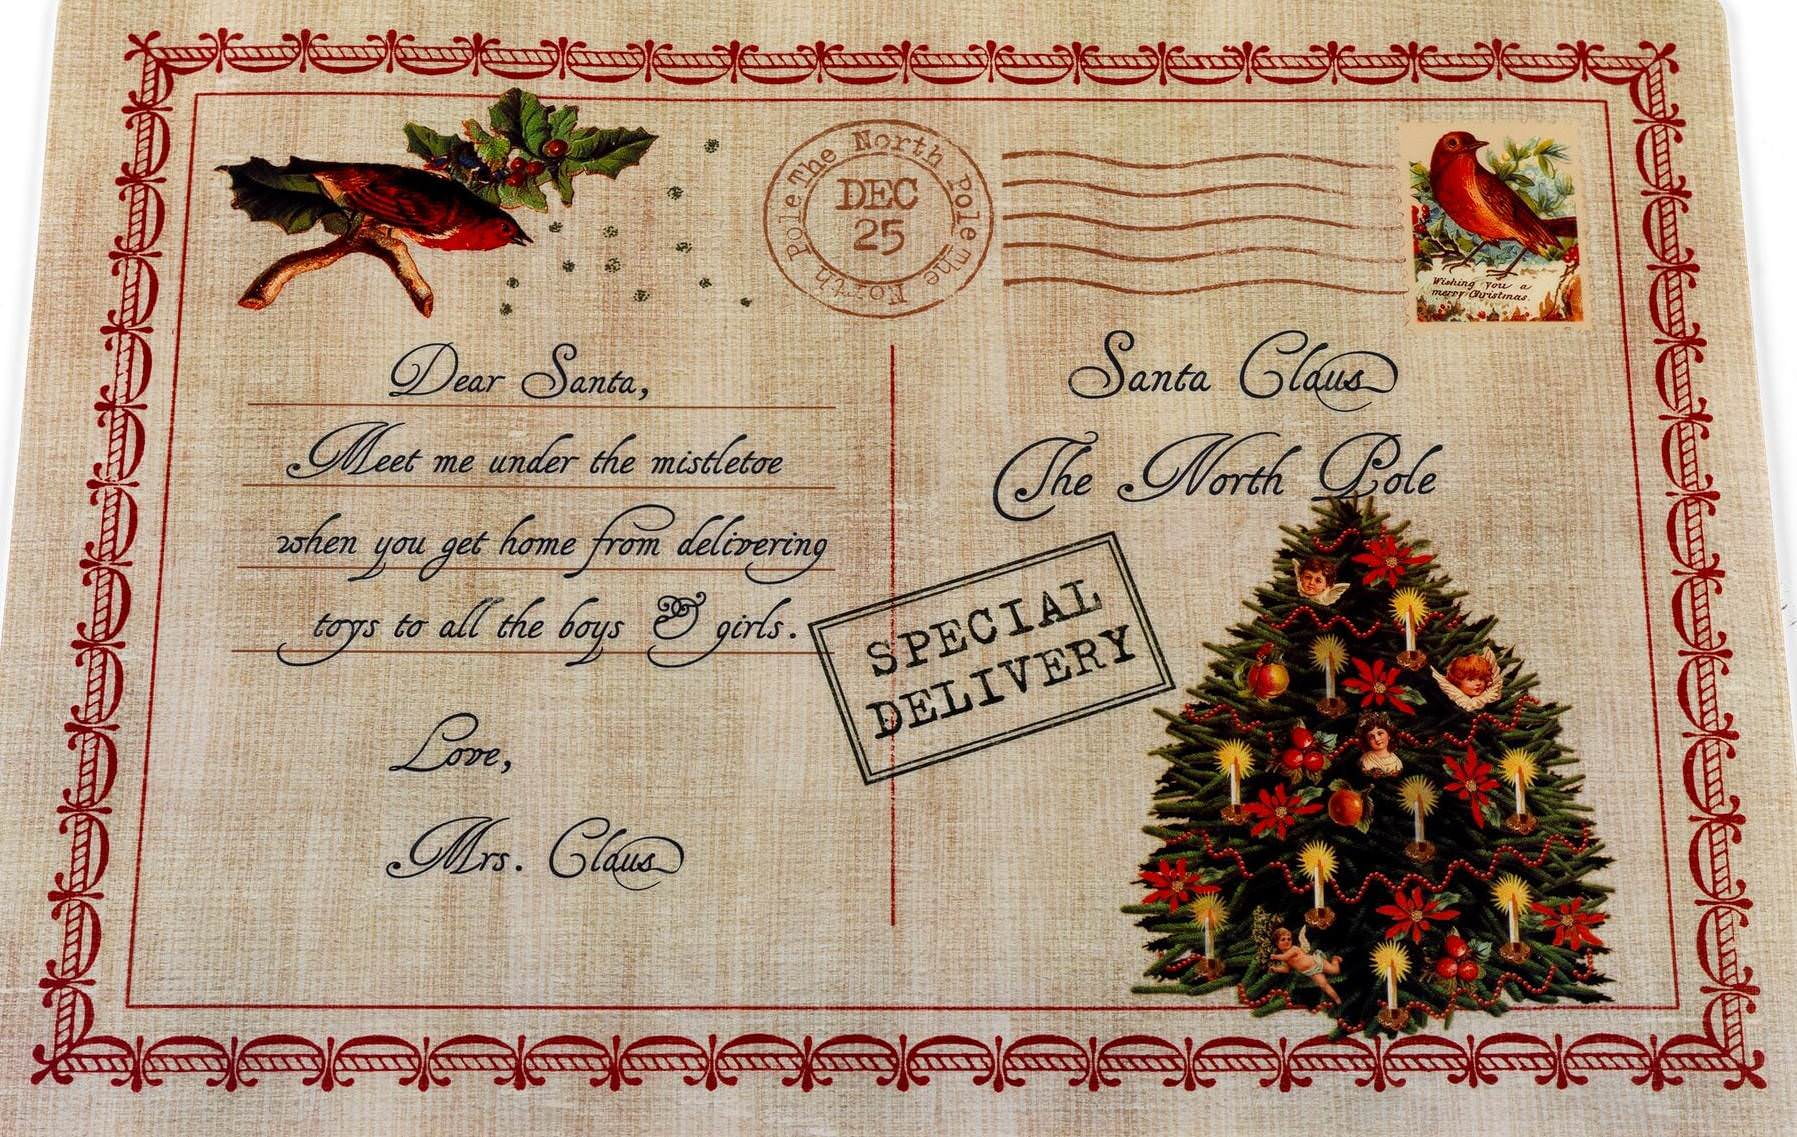 The North Pole The North Pole
DEC
25
Wishing you a
merry Christmas.
Dear Santa,
Meet me under the mistletoe
when you get home from delivering
toys to all the boys & girls.
Love,
Mrs. Claus
Santa Claus
The North Pole
SPECIAL
DELIVERY